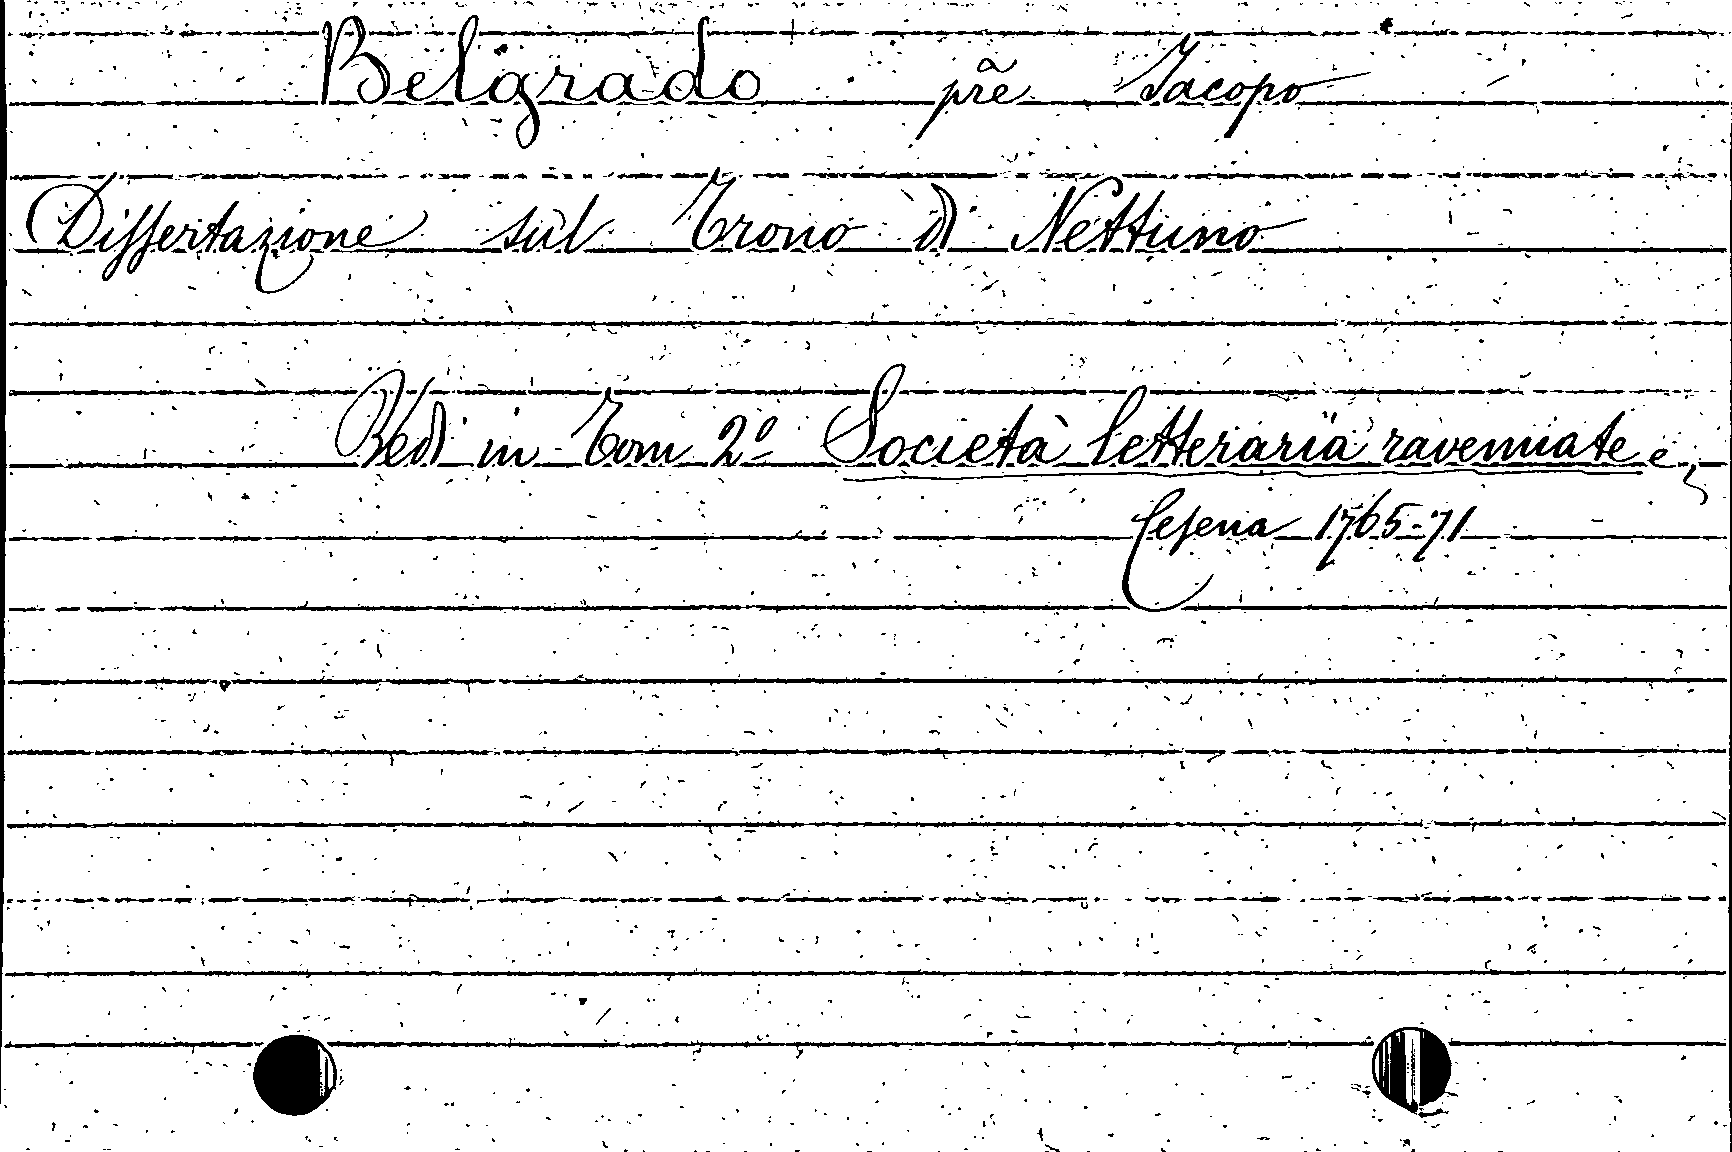 Belgrado prẽ Jacopo
Dissertazione sul Trono di Nettuno
Vedi in Tom 2º Società letteraria ravennate
Cesena 1765-71